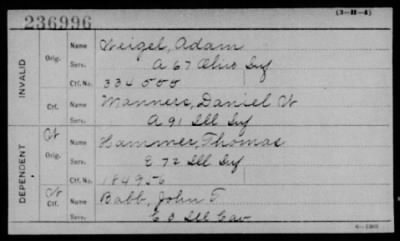 236996
(3-H-4)
INVALID
Orig.
Name Weigel, Adam
Serv. A 67 Ohio Inf
Ctf. No. 334 000
Ctf.
Name Manners, Daniel W
Serv. A 91 Ill Inf
DEPENDENT
Ct
Orig.
Name Hammer, Thomas
Serv. E 72 Ill Inf
Ctf. No. 184956
Ctf.
Name Babb, John T
Serv. E 3 Ill Cav